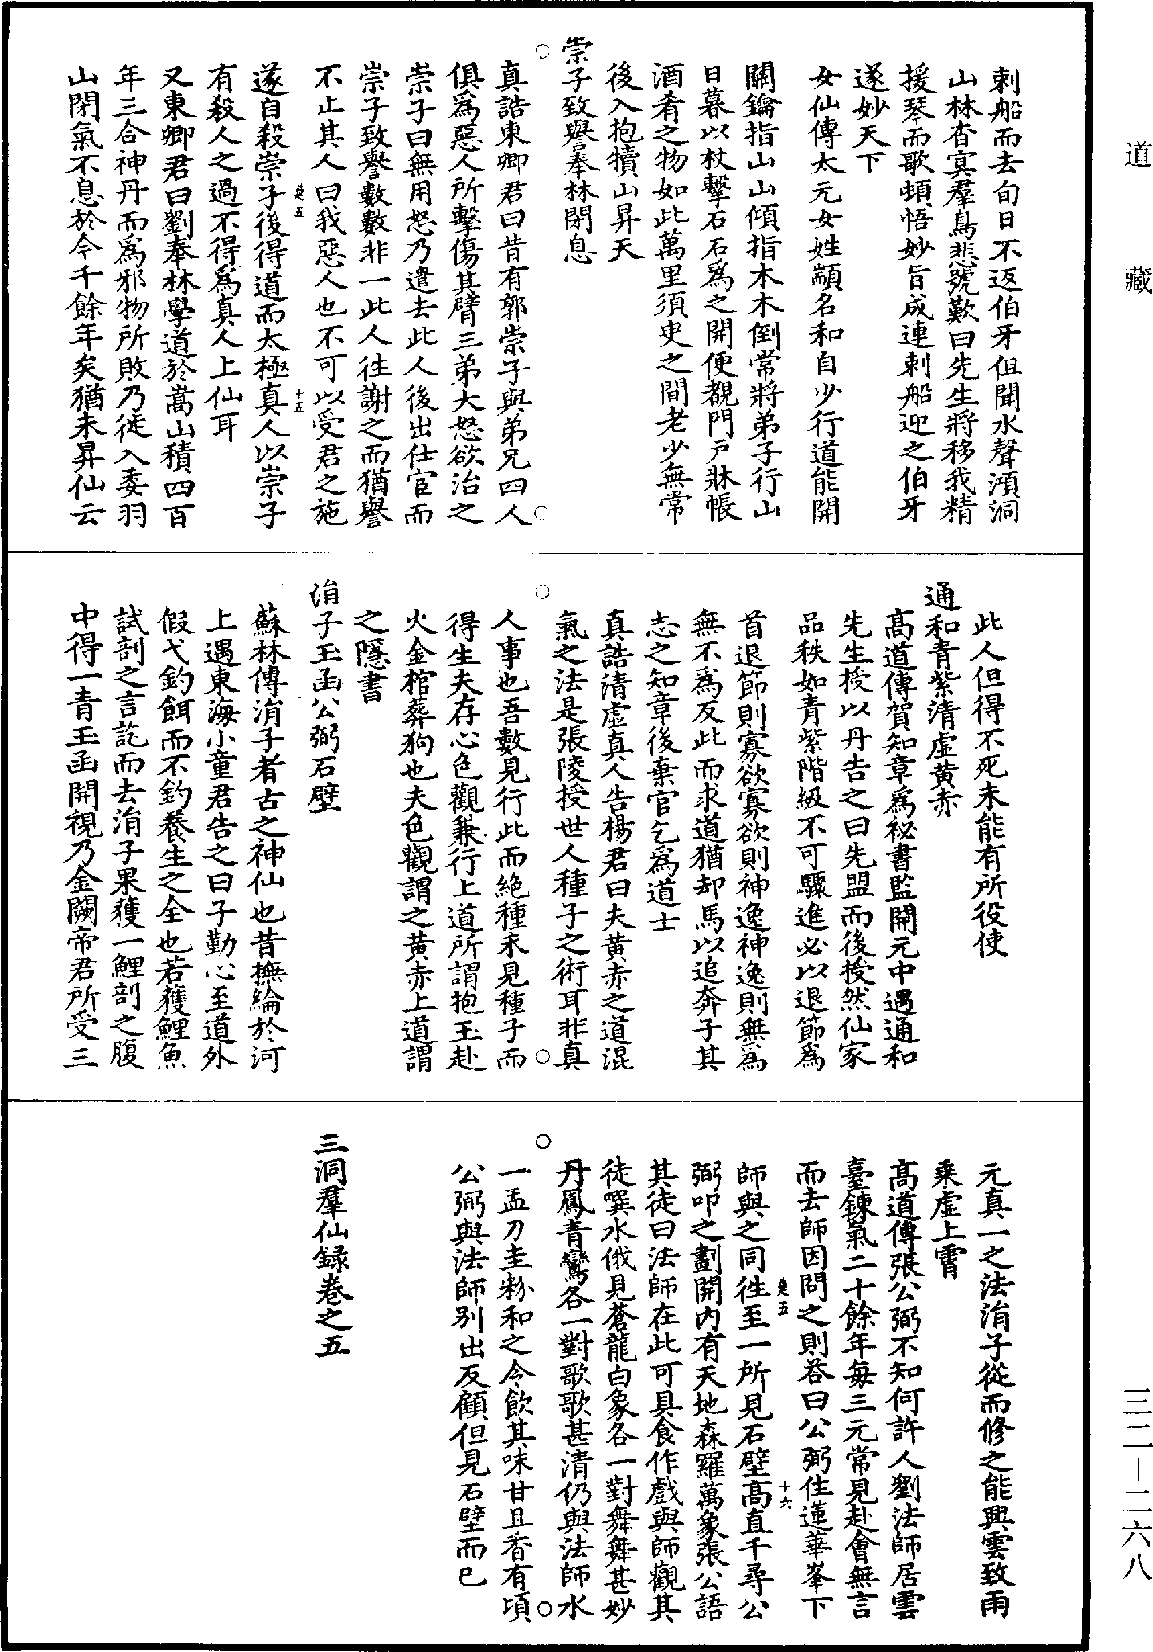 道藏
刺船而去旬日不返伯牙但聞水聲澒洞
山林杳㝠羣鳥悲號歎曰先生將移我精
援琴而歌頓悟妙旨成連刺船迎之伯牙
遂妙天下
女仙傳太元女姓顓名和自少行道能開
關鑰指山山傾指木木倒常將弟子行山
日暮以杖擊石石爲之開便覩門戸牀帳
酒肴之物如此萬里須臾之間老少無常
後入抱犢山昇天
崇子致譽奉林閉息
真誥東卿君曰昔有郭崇子與弟兄四人
俱爲惡人所擊傷其臂三弟大怒欲治之
崇子曰無用怒乃遣去此人後出仕宦而
崇子致譽數數非一此人往謝之而猶譽
不止其人曰我惡人也不可以受君之施
遂自殺崇子後得道而太極真人以崇子
卷五 十五
有殺人之過不得爲真人上仙耳
又東卿君曰劉奉林學道於嵩山積四百
年三合神丹而爲邪物所敗乃徙入委羽
山閉氣不息於今千餘年矣猶未昇仙云
此人但得不死未能有所役使
通和青紫清虛黃赤
高道傳賀知章爲祕書監開元中遇通和
先生授以丹告之曰先盟而後授然仙家
品秩如青紫階級不可驟進必以退節爲
首退節則寡欲寡欲則神逸神逸則無爲
無不爲反此而求道猶却馬以追奔子其
志之知章後棄官乞爲道士
真誥清虛真人告楊君曰夫黃赤之道混
氣之法是張陵授世人種子之術耳非真
人事也吾數見行此而絶種未見種子而
得生夫存心色觀兼行上道所謂抱玉赴
火金棺葬狗也夫色觀謂之黃赤上道謂
之隱書
涓子玉函公弼石壁
蘇林傳涓子者古之神仙也昔撫綸於河
上遇東海小童君告之曰子勤心至道外
假弋釣餌而不釣養生之全也若獲鯉魚
試剖之言訖而去涓子果獲一鯉剖之腹
中得一青玉函開視乃金闕帝君所受三
元真一之法涓子從而修之能興雲致雨
乘虛上霄
高道傳張公弼不知何許人劉法師居雲
臺鍊氣二十餘年每三元常見赴會無言
而去師因問之則荅曰公弼住蓮華峯下
卷五 十六
師與之同往至一所見石壁高直千尋公
弼叩之劃開内有天地森羅萬象張公語
其徒曰法師在此可具食作戲與師觀其
徒噀水俄見蒼龍白象各一對舞舞甚妙
丹鳳青鸞各一對歌歌甚清仍與法師水
一盂刀圭粉和之令飲其味甘且香有頃
公弼與法師别出反顧但見石壁而已
三洞羣仙録卷之五
三二—二六八